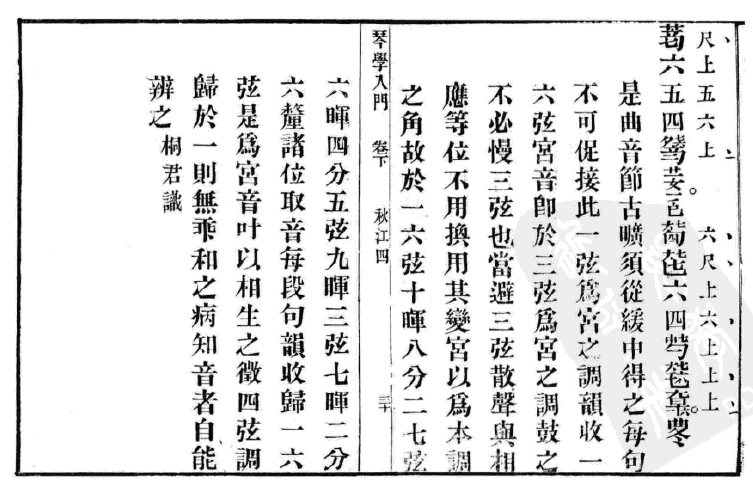 尺上五六上　六尺上六上上上
六五四　六四
是曲音節古曠須從緩中得之每句
不可促接此一弦爲宮之調韻收一
六弦宮音卽於三弦爲宮之調鼓之
不必慢三弦也當避三弦散聲與相
應等位不用換用其變宮以爲本調
之角故於一六弦十暉八分二七弦
琴學入門　卷下　秋江四　三十
六暉四分五弦九暉三弦七暉二分
六釐諸位取音每段句韻收歸一六
弦是爲宮音叶以相生之徵四弦調
歸於一則無乖和之病知音者自能
辨之　桐君識